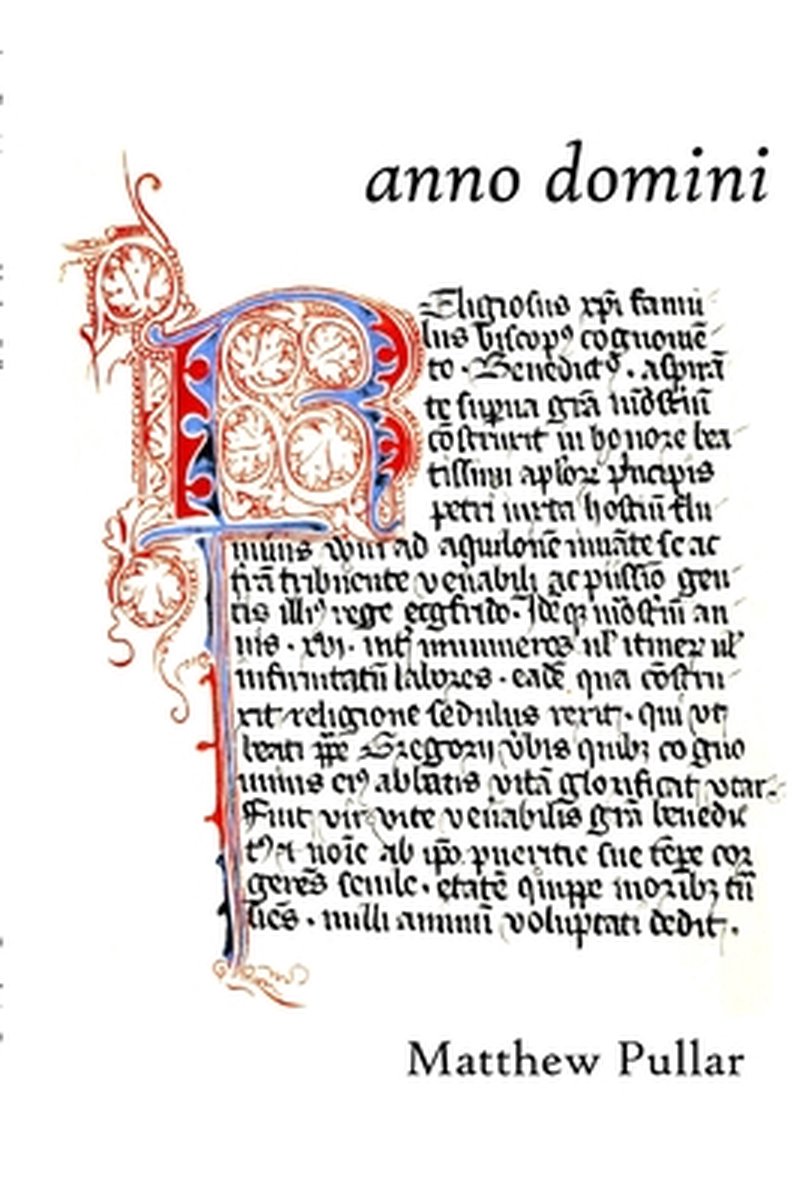 anno domini
Religiosus xp̄i famu
lus biscopꝰ cognomē
to · Benedictꝰ · aspirā
te sup̄na grā
cōstruxit in honore bea
tissimi aplorꝝ pͥncipis
petri iuxta hostiū flu
minis ad aquilonē iuuāte se ac
t̄rā tribuente ven̄abili ac piissīo gen
tis illiꝰ rege ecgfrido · Idēqꝫ an
nis · xvi · int̄ innumeros ul̓ itineꝝ ul̓
infirmitatū labores · eadē qua cōstru
xit religione sedulus rexit · qui ut
beati pp̄e Gregorij ūbis quibꝫ cogno
minis eiꝰ ablatis vitā glorificat utar ·
Fuit vir vite ven̄abilis grā benedic
tꝰ et noīe ab ip̄o pueritie sue tēpe cor
gerēs senile · etatē quippe moribꝫ trā
siēs · nulli animū voluptati dedit ·
Matthew Pullar